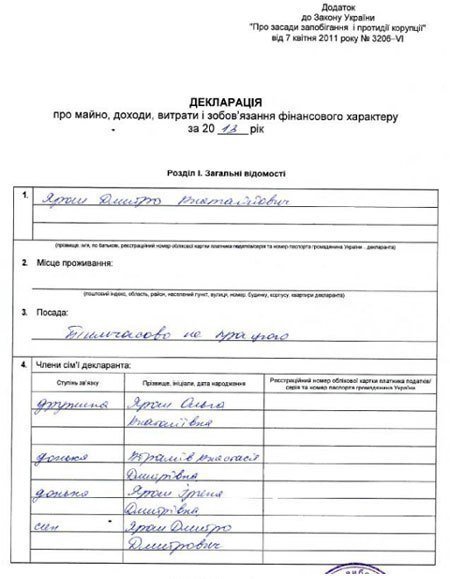 Додаток
до Закону України
"Про засади запобігання і протидії корупції"
від 7 квітня 2011 року № 3206–VI
ДЕКЛАРАЦІЯ
про майно, доходи, витрати і зобов'язання фінансового характеру
за 20 13 рік
Розділ I. Загальні відомості
1. Ярош Дмитро Анатолійович
(прізвище, ім'я, по батькові, реєстраційний номер облікової картки платника податків/серія та номер паспорта громадянина України - декларанта)
2. Місце проживання:
(поштовий індекс, область, район, населений пункт, вулиця, номер будинку, корпусу, квартири декларанта)
3. Посада:
Тимчасово не працюю
4. Члени сім'ї декларанта:
Ступінь зв'язку Прізвище, ініціали, дата народження Реєстраційний номер облікової картки платника податків/
серія та номер паспорта громадянина України
дружина Ярош Ольга
Анатоліївна
донька Анастасія
Дмитрівна
донька Ярош Ірина
Дмитрівна
син Ярош Дмитро
Дмитрович